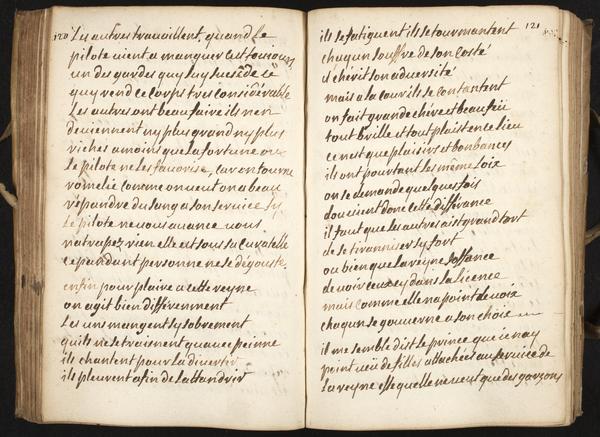 120
Les autres travaillent, quand le
pilote vient a manquer cest toujours
un des gardes quy luy succede ce
quy rend ce corps tres considerable
Les autres ont beau faire ils nen
deviennent ny plus grand ny plus
riches a moins que la fortune ou
le pilote ne les favorise, car on tourne
comme on veut on a beau
répandre du sang a son service sy
le pilote ne vous avance vous
natrapez rien elle est sous sa curatelle
cependant personne ne se dégouste.
enfin pour plaire a cette reyne
on agit bien différemment
Les uns mangent sy sobrement
quils ne se traisnent qua vec peinne
ils chantent pour la divertir
ils pleurent afin de lattandrir
121
ils se fatiguent ils se tourmantent
chaqun souffre de son costé
et chérit son adversité
mais a la cour ils se contantent
on fait grande chére et beau feü
tout brille et tout plaist en ce lieu
ce nest que plaisirs et bonbances
ils ont pourtant les même loix
on se demande quelques fois
dou vient donc cette différance
il faut que les autres aist grand tort
de se tiranniser sy fort
ou bien que la reyne soffance
de voir ceux cy dans la licence
mais comme elle na point de voix
chaqun se gouverne a son choix
il me semble dist le prince que ie nay
point veü de filles attachées au service de
la reyne esse quelle ne veut que des garzons